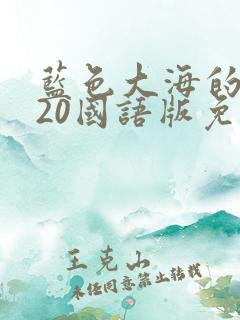 藍色大海的
20國語版免
王克山
未经同意禁止转载